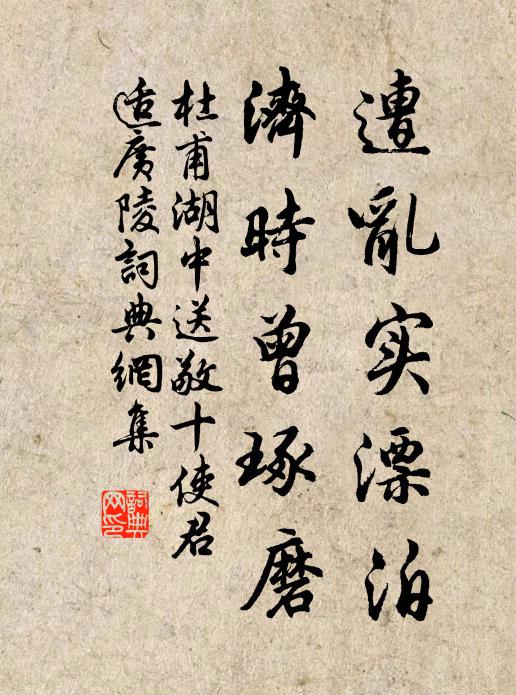 遭亂实漂泊
濟時曾琢磨
杜甫湖中送敬十使君
适廣陵詞典網集
詞典
网印